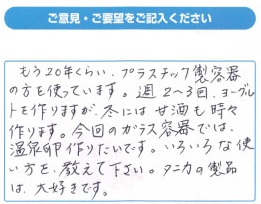 ご意見・ご要望をご記入ください
もう20年くらい、プラスチック製容器
の方を使っています。週2～3回、ヨーグル
トを作りますが、冬には甘酒も時々
作ります。今回のガラス容器では、
温泉卵作りたいです。いろいろな使
い方を、教えて下さい。タニカの製品
は、大好きです。